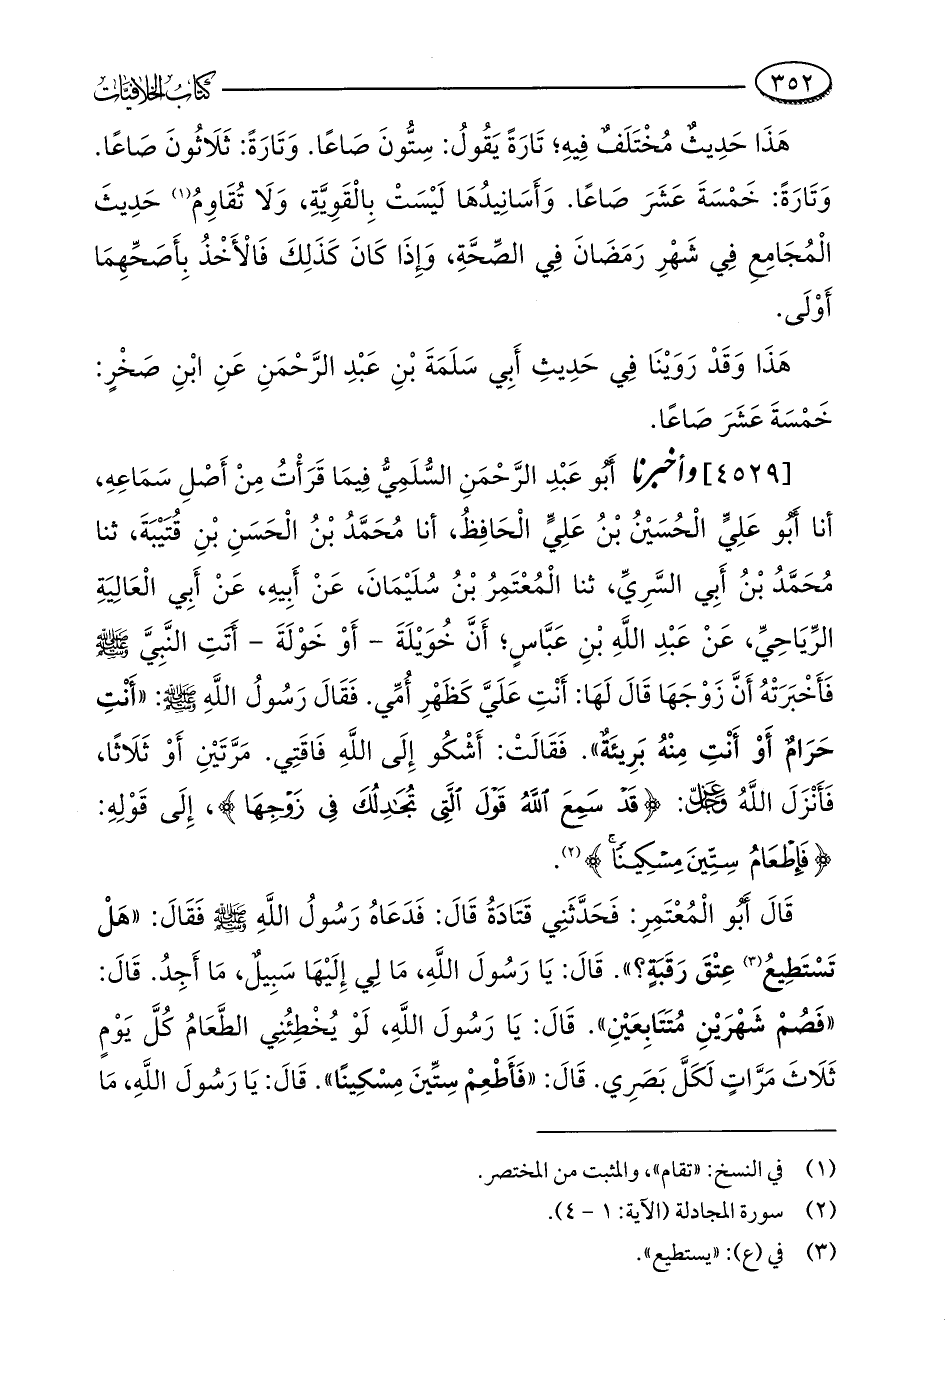 ٣٥٢ كتاب الخلافيات
هَذَا حَدِيثٌ مُخْتَلَفٌ فِيهِ؛ تَارَةً يَقُولُ: سِتُّونَ صَاعًا. وَتَارَةً: ثَلَاثُونَ صَاعًا.
وَتَارَةً: خَمْسَةَ عَشَرَ صَاعًا. وَأَسَانِيدُهَا لَيْسَتْ بِالْقَوِيَّةِ، وَلَا تُقَاوِمُ(١) حَدِيثَ
الْمُجَامِعِ فِي شَهْرِ رَمَضَانَ فِي الصِّحَّةِ، وَإِذَا كَانَ كَذَلِكَ فَالْأَخْذُ بِأَصَحِّهِمَا
أَوْلَى.
هَذَا وَقَدْ رَوَيْنَا فِي حَدِيثِ أَبِي سَلَمَةَ بْنِ عَبْدِ الرَّحْمَنِ عَنِ ابْنِ صَخْرٍ:
خَمْسَةَ عَشَرَ صَاعًا.
[٤٥٢٩] وأخبرنا أَبُو عَبْدِ الرَّحْمَنِ السُّلَمِيُّ فِيمَا قَرَأْتُ مِنْ أَصْلِ سَمَاعِهِ،
أنا أَبُو عَلِيٍّ الْحُسَيْنُ بْنُ عَلِيٍّ الْحَافِظُ، أنا مُحَمَّدُ بْنُ الْحَسَنِ بْنِ قُتَيْبَةَ، ثنا
مُحَمَّدُ بْنُ أَبِي السَّرِيِّ، ثنا الْمُعْتَمِرُ بْنُ سُلَيْمَانَ، عَنْ أَبِيهِ، عَنْ أَبِي الْعَالِيَةِ
الرِّيَاحِيِّ، عَنْ عَبْدِ اللَّهِ بْنِ عَبَّاسٍ؛ أَنَّ خُوَيْلَةَ - أَوْ خَوْلَةَ - أَتَتِ النَّبِيَّ ﷺ
فَأَخْبَرَتْهُ أَنَّ زَوْجَهَا قَالَ لَهَا: أَنْتِ عَلَيَّ كَظَهْرِ أُمِّي. فَقَالَ رَسُولُ اللَّهِ ﷺ: «أَنْتِ
حَرَامٌ أَوْ أَنْتِ مِنْهُ بَرِيئَةٌ». فَقَالَتْ: أَشْكُو إِلَى اللَّهِ فَاقَتِي. مَرَّتَيْنِ أَوْ ثَلَاثًا،
فَأَنْزَلَ اللَّهُ عَزَّ وَجَلَّ: ﴿قَدْ سَمِعَ ٱللَّهُ قَوْلَ ٱلَّتِي تُجَٰدِلُكَ فِي زَوْجِهَا﴾، إِلَى قَوْلِهِ:
﴿فَإِطْعَامُ سِتِّينَ مِسْكِينًاۚ﴾(٢).
قَالَ أَبُو الْمُعْتَمِرِ: فَحَدَّثَنِي قَتَادَةُ قَالَ: فَدَعَاهُ رَسُولُ اللَّهِ ﷺ فَقَالَ: «هَلْ
تَسْتَطِيعُ(٣) عِتْقَ رَقَبَةٍ؟». قَالَ: يَا رَسُولَ اللَّهِ، مَا لِي إِلَيْهَا سَبِيلٌ، مَا أَجِدُ. قَالَ:
«فَصُمْ شَهْرَيْنِ مُتَتَابِعَيْنِ». قَالَ: يَا رَسُولَ اللَّهِ، لَوْ يُخْطِئُنِي الطَّعَامُ كُلَّ يَوْمٍ
ثَلَاثَ مَرَّاتٍ لَكَلَّ بَصَرِي. قَالَ: «فَأَطْعِمْ سِتِّينَ مِسْكِينًا». قَالَ: يَا رَسُولَ اللَّهِ، مَا
(١) في النسخ: «تقام»، والمثبت من المختصر.
(٢) سورة المجادلة (الآية: ١ - ٤).
(٣) في (ع): «يستطيع».